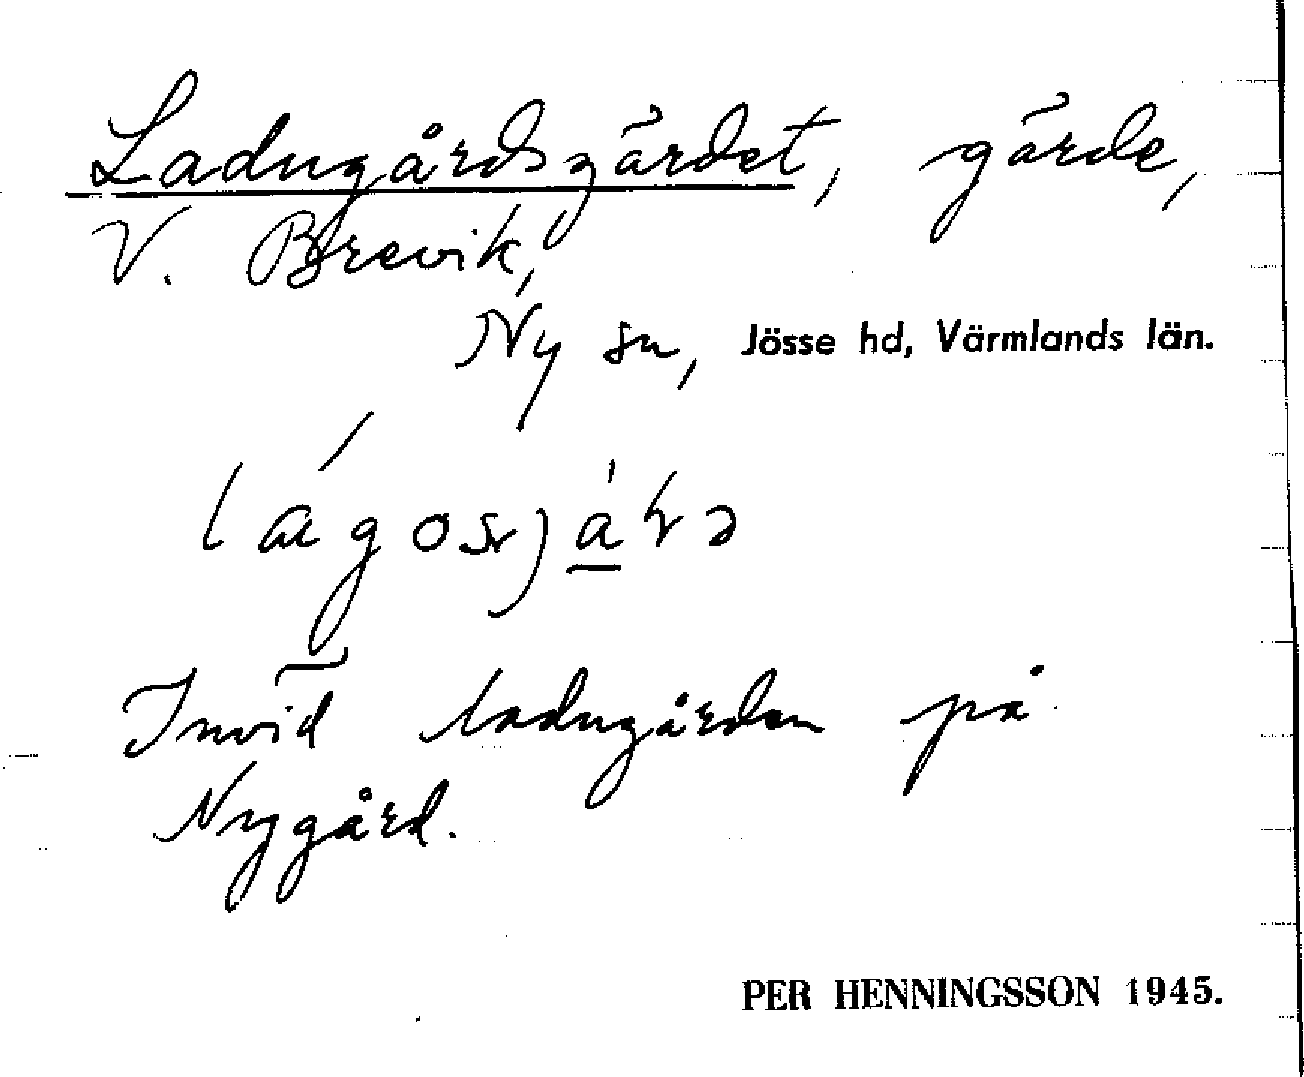 Ladugårdsgärdet, gärde,
V. Brevik,
Ny sn, Jösse hd, Värmlands län.
Invid ladugården på
Nygård.
PER HENNINGSSON 1945.